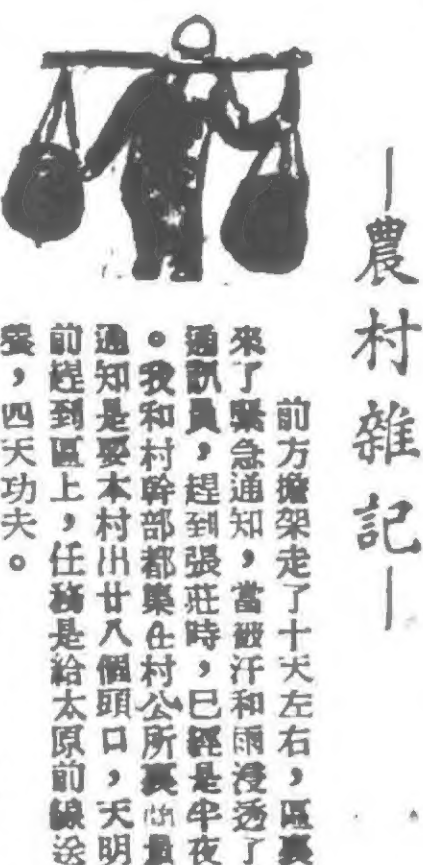 —農村雜記—
前方擔架走了十天左右，區裏
來了緊急通知，當被汗和雨浸透了
通訊員，趕到張莊時，已經是半夜
。我和村幹部都集在村公所裏商量
通知是要本村出廿八個頭口，天明
前趕到區上，任務是給太原前線送
，四天功夫。